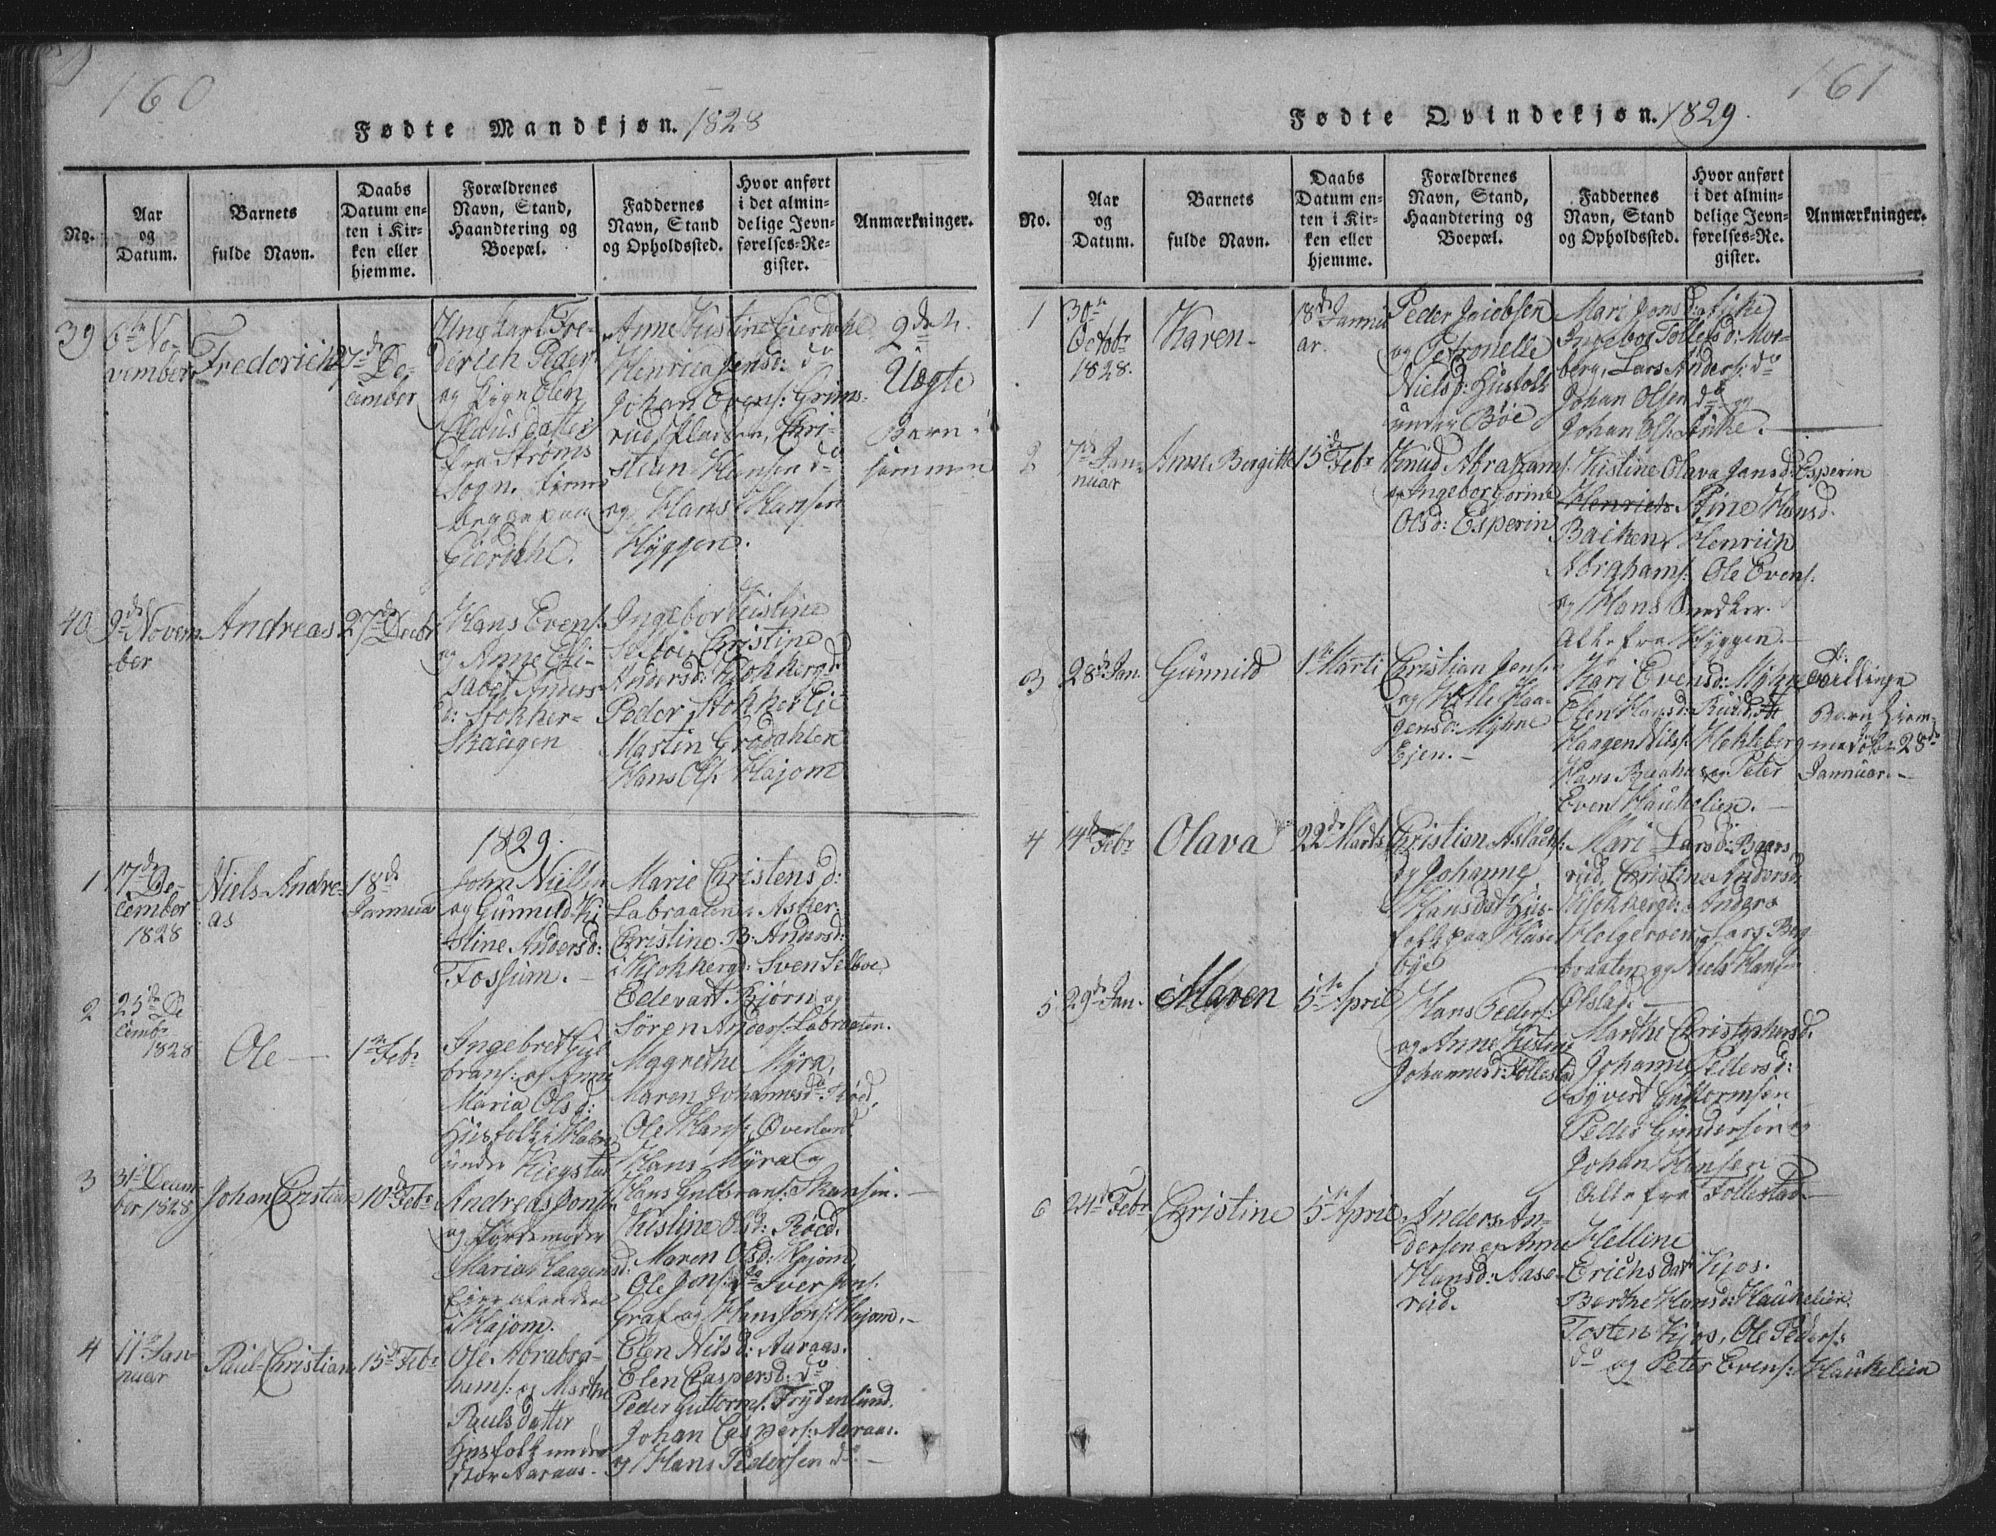 160
Fødte Mandkjøn. 1828
No.
Aar
og
Datum.
Barnets
fulde Navn.
Daabs
Datum en-
ten i Kir-
ken eller
hjemme.
Forældrenes
Navn, Stand,
Haandtering og
Boepæl.
Faddernes
Navn, Stand
og Opholdssted.
Hvor anført
i det almin-
delige Jevn-
førelses-Re-
gister.
Anmærkninger.
39
6te No-
vember
Frederich
27de De-
cember
Ungkarl Fre-
derich Peder
og Pigen Elen
Clausdatter
fra Strøms
Sogn, tiener
begge paa
Gierdahl.
Anne Kistine Gierdahl
Henrica Jensd: do
Johan Evens: Grims-
rud, Pladsen, Chri-
stian Hansen do
og Hans Hansen
Hyggen.
2det
Uægte
Barn
sammen
40
9de Novem
ber
Andreas
27de Decbr
Hans Evens:
og Anne Eli-
sabet Anders-
d: Stokker-
Skaugen
Ingebor Kistine
Selboe, Christine
Andersd: Klokkergd.
Peder Stokker Eie
Martin Grødahlen
Hans Ols: Hajom
1829.
1
17de De-
cember
1828
Niels Andre-
as
18de
Januar
John Nielsen
og Gunnild Ki-
stine Andersd:
Fossum.
Marie Christensd:
Labraaten i Asker
Christine B: Andersd:
i Klokkergd: Sven Selboe,
Edevart Bjørn og
Søren Anders: Labraaten.
2
25de De
cembr
1828
Ole
1te Febr
Ingebret Gul
brans: og Anne
Maria Olsd:
Huusfolk i
under Kiegstad
Magrethe Myra,
Maren Johannesd: Røed,
Ole Hans: Øverland
Hans Myra og
Hans Gulbrans: Skansen.
3
31te Decem-
ber 1828
Johan Christian
10de Febr
Andreas Jons:
og
Maria Haagensd:
Hajom.
Kistine Olsd: Røed.
Maren Olsd: Hajom,
Ole Jons: do Iver Jens:
Graf og Hans Jons: Hajom.
4
11te Jan-
nuar
Paul Christian
15de Febr
Ole Abraha-
hams: og Marthe
Paulsdatter
Husfolk under
stor Aaraas.
Elen Nilsd: Aaraas.
Elen Caspersd: do
Peder Guttorms: Frydenlund.
Johan Caspers: Aaraas.
og Hans Pedersen do
161
Fødte Qvindekjøn. 1829.
No.
Aar
og
Datum.
Barnets
fulde Navn.
Daabs
Datum en-
ten i Kir-
ken eller
hjemme.
Forældrenes
Navn, Stand,
Haandtering og
Boepæl.
Faddernes
Navn, Stand
og Opholdssted.
Hvor anført
i det almin-
delige Jevn-
førelses-Re-
gister.
Anmærkninger.
1
30te
Octobr
1828.
Karen
18de Janu
ar.
Peder Jacobsen
og Petronelle
Nielsd: Husfolk
under Bøe
Mari Jonsd:
Ingebor Tollefsd: Mor-
berg, Lars Anders: do
Johan Olsen do og
Johan Ols:
2
7de Jan-
nuar
Anne Bergitte
15de Febr
Knud Abrahams:
og Ingebor Gorine
Olsd: Esperin
Kistine Olava Jansd: Esperin
Henrich Stine Hansd.
Backen, Henrich
Abrahams: Ole Evens.
og Hans Snedker.
Alle fra Hyggen.
3
28de Jan
Gunnild
1te Marti
Christian Jens:
og Helle Haa-
gensd: Myhre
Ejen.
Kari Evensd: Myhre
Elen Hansd:
Haagen Nils: Hekleberg
Hans og Peter
Even Haukelien.
Tvillinge
Barn hiem-
me døbt 28de
Januar.
4
14de Febr
Olava
22de Marts
Christian Aslachs:
og Johanne
Hansdat Hus-
folk paa Huse-
bye
Mari Larsd: Baars
rud, Christine Andersd:
Klokkergd: Anders
Helgeroen, Lars Berg
braaten og Niels Hansen
Ølstad.
5
29de Jan.
Maren
5te April
Hans Peders:
og Anne Kistine
Johannesd: Tollestad
Marthe Christophersd:
Johanne Pedersd:
Syvert Guttormsen
Peder Gundersen og
Johan Hansen
Alle fra Follestad.
6
24de Febr
Christine
5te April
Anders An-
dersen og Anne
Hansd: Aase-
rud.
Helline
Erichsdat Kjos.
Berthe Hansd: Haukelien
Tosten Kjos, Ole Peders:
do og Peter Evens: Haukelien